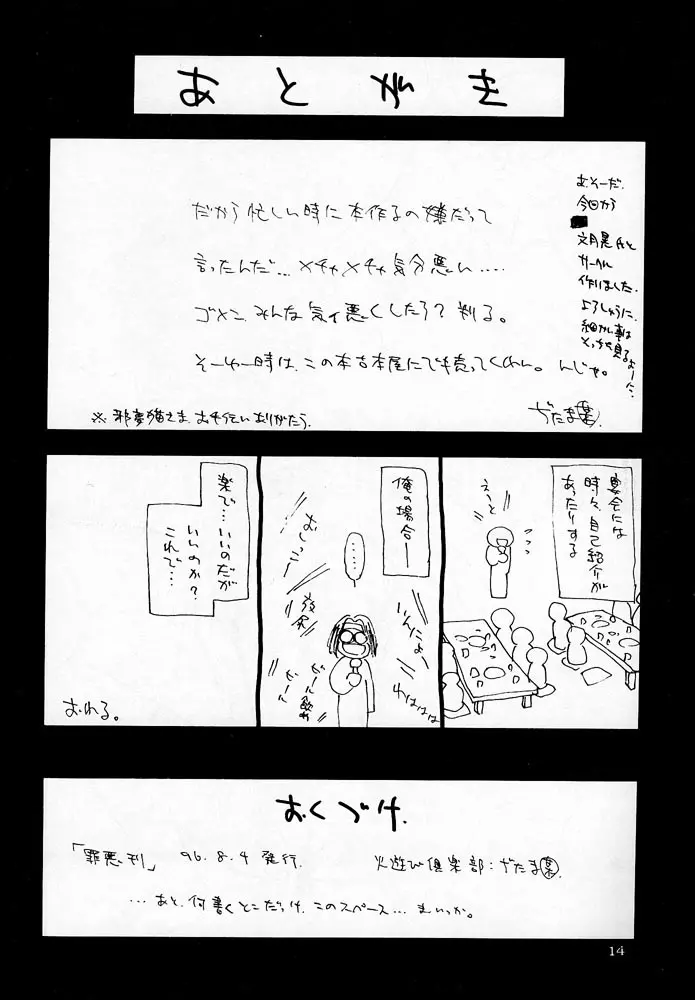 あとがき
だから忙しい時に本作るの嫌だって
言ったんだ…メチャメチャ気分悪い‥‥
ゴメン、みんな気ィ悪くしたろ？判る。
そーゆー時は、この本古本屋にでも売ってくれい。んじゃ。
あ、そーだ、
今回から
文月晃氏と
サークル
作りました。
よろしゅうに、
細かい事は
そっちを見るよーに…
※邪夢猫さま、お手伝いありがとう。
ぢたま(某)
宴会には
時々、自己紹介が
あったりする
えーと
俺の場合―
……
いんにょー
わははは
おしっこー
放尿
ビール飲め
ビール
楽で…いいのだが
いいのか？
これで…
おわる。
おくづけ
「罪悪刊」 96.8.4 発行
火遊び倶楽部：ぢたま(某)
…あと、何書くとこだっけ、このスペース…まいっか。
14